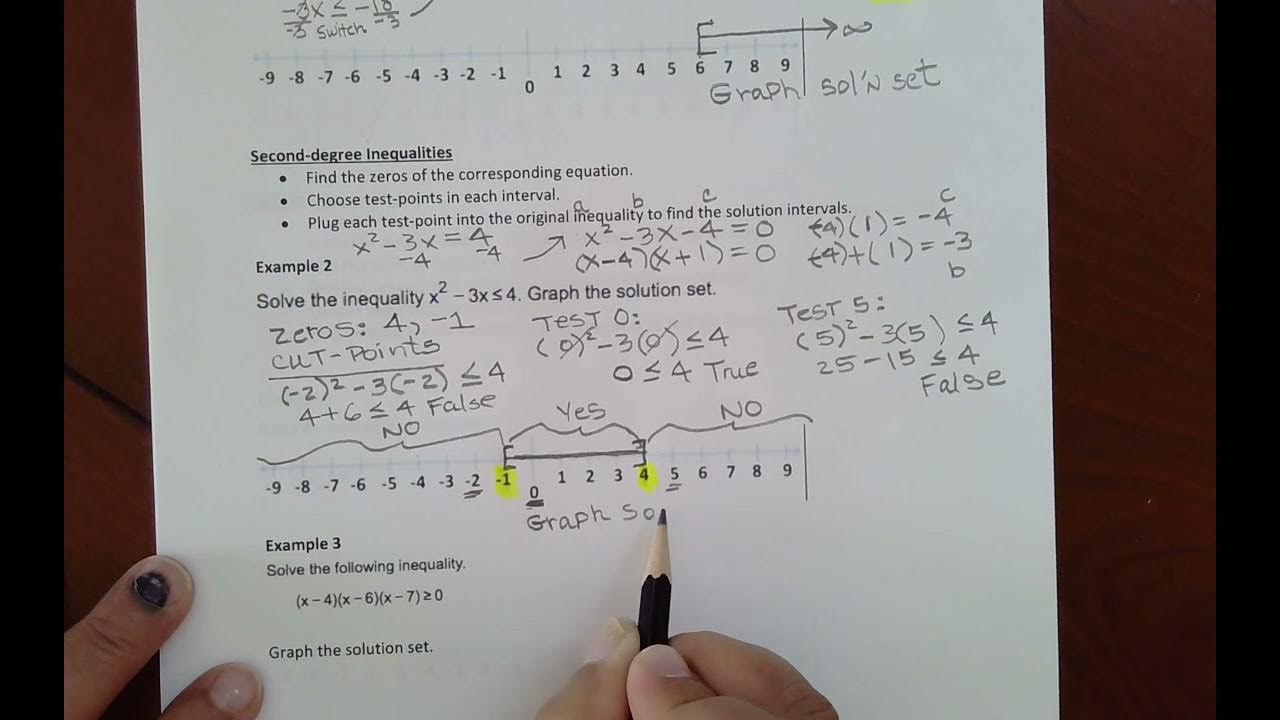 -3x ≤ -18
-3 Switch -3
∞
-9 -8 -7 -6 -5 -4 -3 -2 -1 0 1 2 3 4 5 6 7 8 9
Graph sol'n set
Second-degree Inequalities
• Find the zeros of the corresponding equation.
• Choose test-points in each interval.
a b c c
• Plug each test-point into the original inequality to find the solution intervals.
x² - 3x = 4
-4 -4
x² - 3x - 4 = 0
(x - 4)(x + 1) = 0
(-4)(1) = -4
(-4)+(1) = -3
b
Example 2
Solve the inequality x² – 3x ≤ 4. Graph the solution set.
Zeros: 4, -1
CUT-Points
(-2)² - 3(-2) ≤ 4
4+6 ≤ 4 False
NO
Test 0:
(0)² - 3(0) ≤ 4
0 ≤ 4 True
Yes
Test 5:
(5)² - 3(5) ≤ 4
25 - 15 ≤ 4
False
NO
-9 -8 -7 -6 -5 -4 -3 -2 -1 0 1 2 3 4 5 6 7 8 9
Graph so
Example 3
Solve the following inequality.
(x – 4)(x – 6)(x – 7) ≥ 0
Graph the solution set.